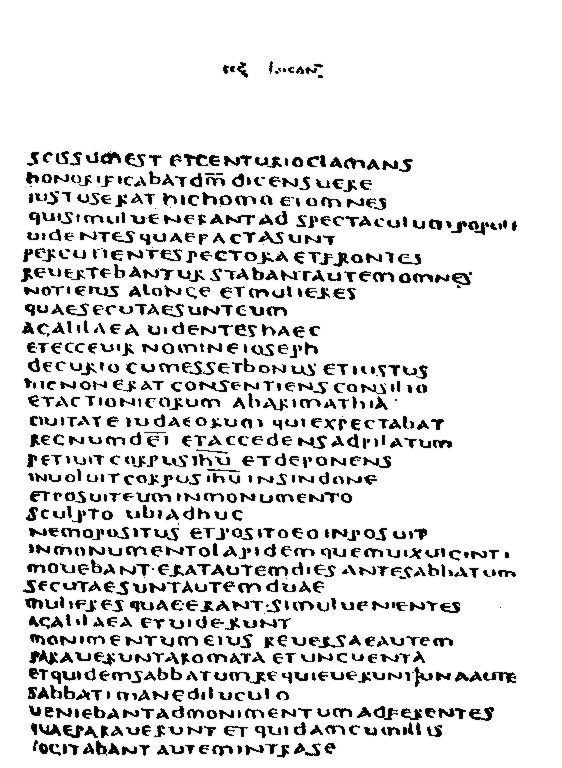 sec lucan
scissumest etcenturioclamans
honorificabatdm̄ dicensuere
iustuserat hichomo etomnes
quisimuluenerantad spectaculumpopuli
uidentesquaefactasunt
percutientespectoraetfrontes
reuertebantur stabantautemomnes
notieius alonge etmulieres
quaesecutaesunteum
agalilaea uidenteshaec
etecceuir nomineioseph
decurio cumessetbonus etiustus
hicnonerat consentiens consilio
etactionieorum abarimathia
ciuitate iudaeorum quiexpectabat
regnumdeī etaccedensadpilatum
petiuitcorpusihū etdeponens
inuoluitcorpusihū insindone
etposuiteuminmonumento
sculpto ubiadhuc
nemopositus etpositoeoinposuit
inmonumentolapidem quemuixuiginti
mouebant·eratautemdies antesabbatum
secutaesuntautemduae
mulieresquaeerant·simuluenientes
agalilaea etuiderunt
monimentumeius reuersaeautem
paraueruntaromata etunguenta
etquidemsabbatumrequieueruntunaaute
sabbatimanediluculo
ueniebantadmonimentumadferentes
quaeparauerunt et quidamcumillis
cogitabant auteminterase